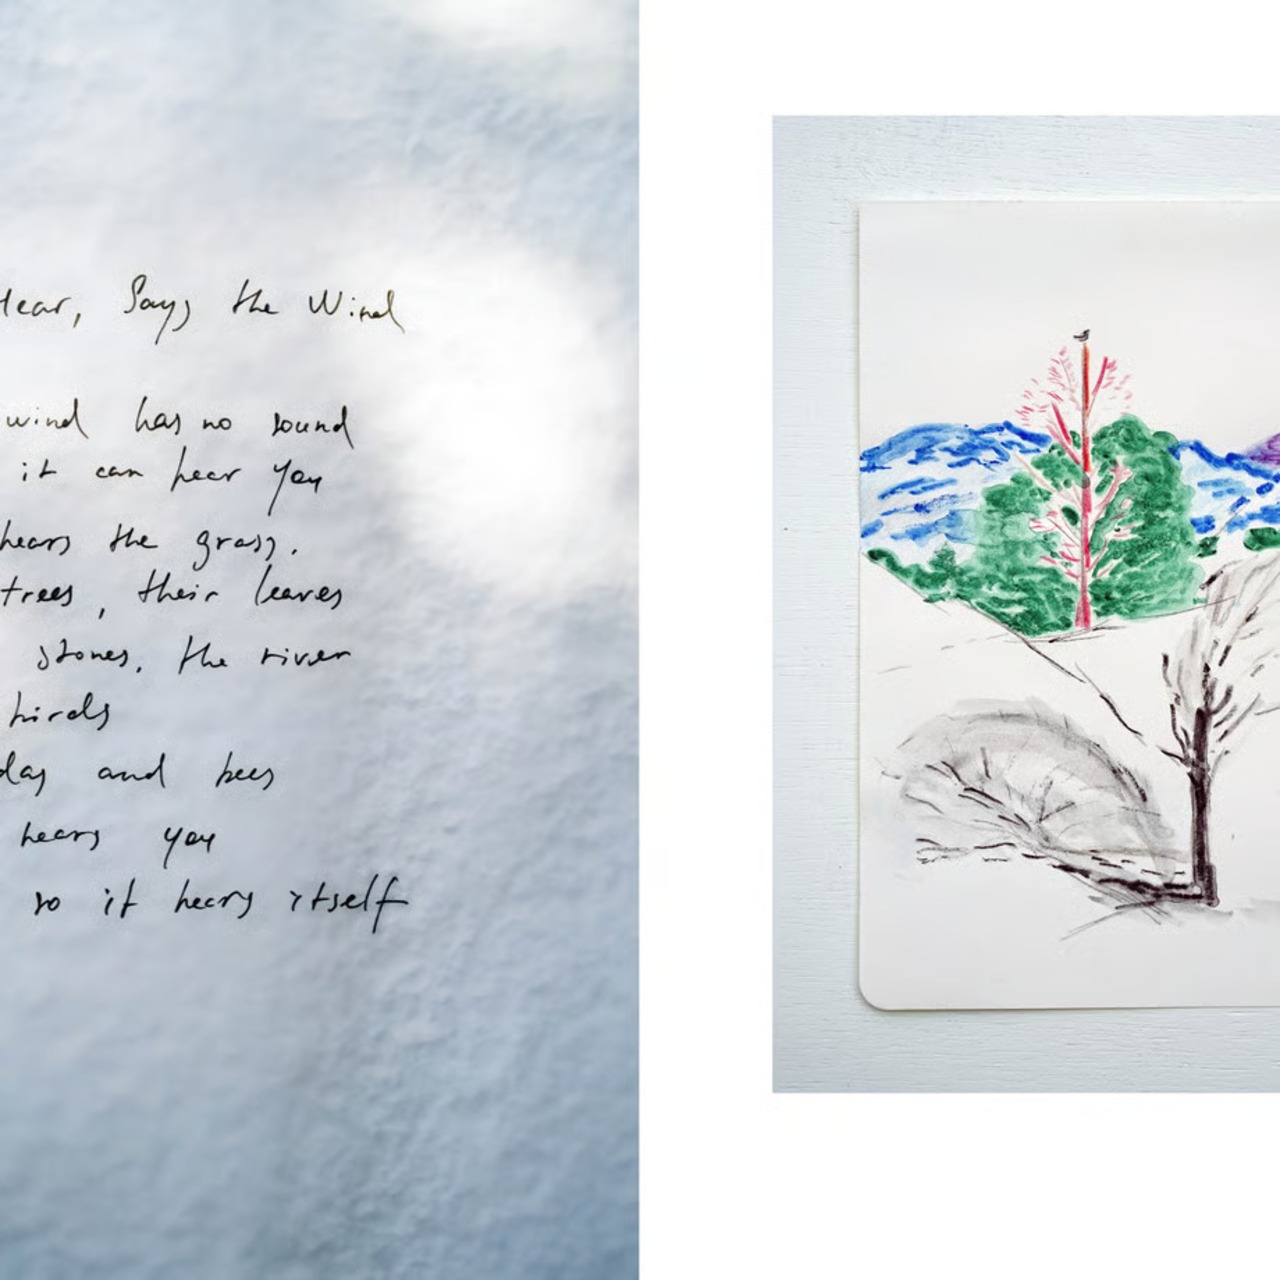 Hear, Says the Wind
wind has no sound
it can hear you
hears the grass.
trees, their leaves
stones, the river
birds
and bees
hears you
so it hears itself